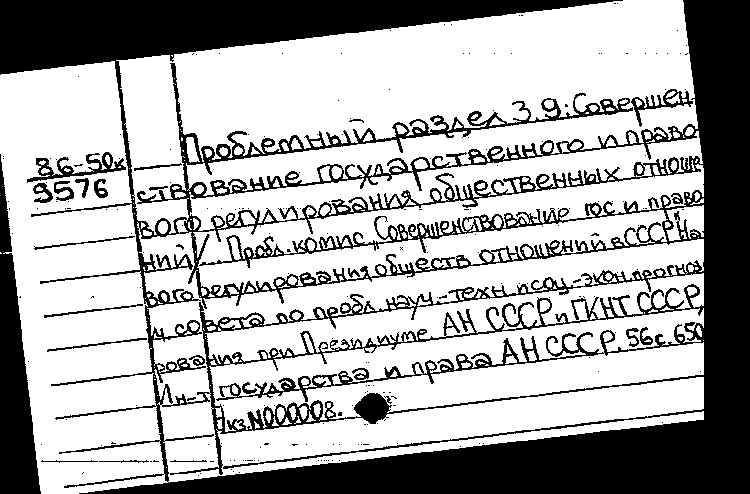 86-50к
9576
Проблемный раздел 3.9: Совершен-
ствование государственного и право-
вого регулирования общественных отноше-
ний/... Пробл. комис. „Совершенствование гос и право-
вого регулирования обществ отношений в СССР" На-
уч. совета по пробл. науч.-техн и соц.-экон. прогнози-
рования при Президиуме АН СССР и ГКНТ СССР,
Ин-т государства и права АН СССР. 56с. 650
Экз. N000008.